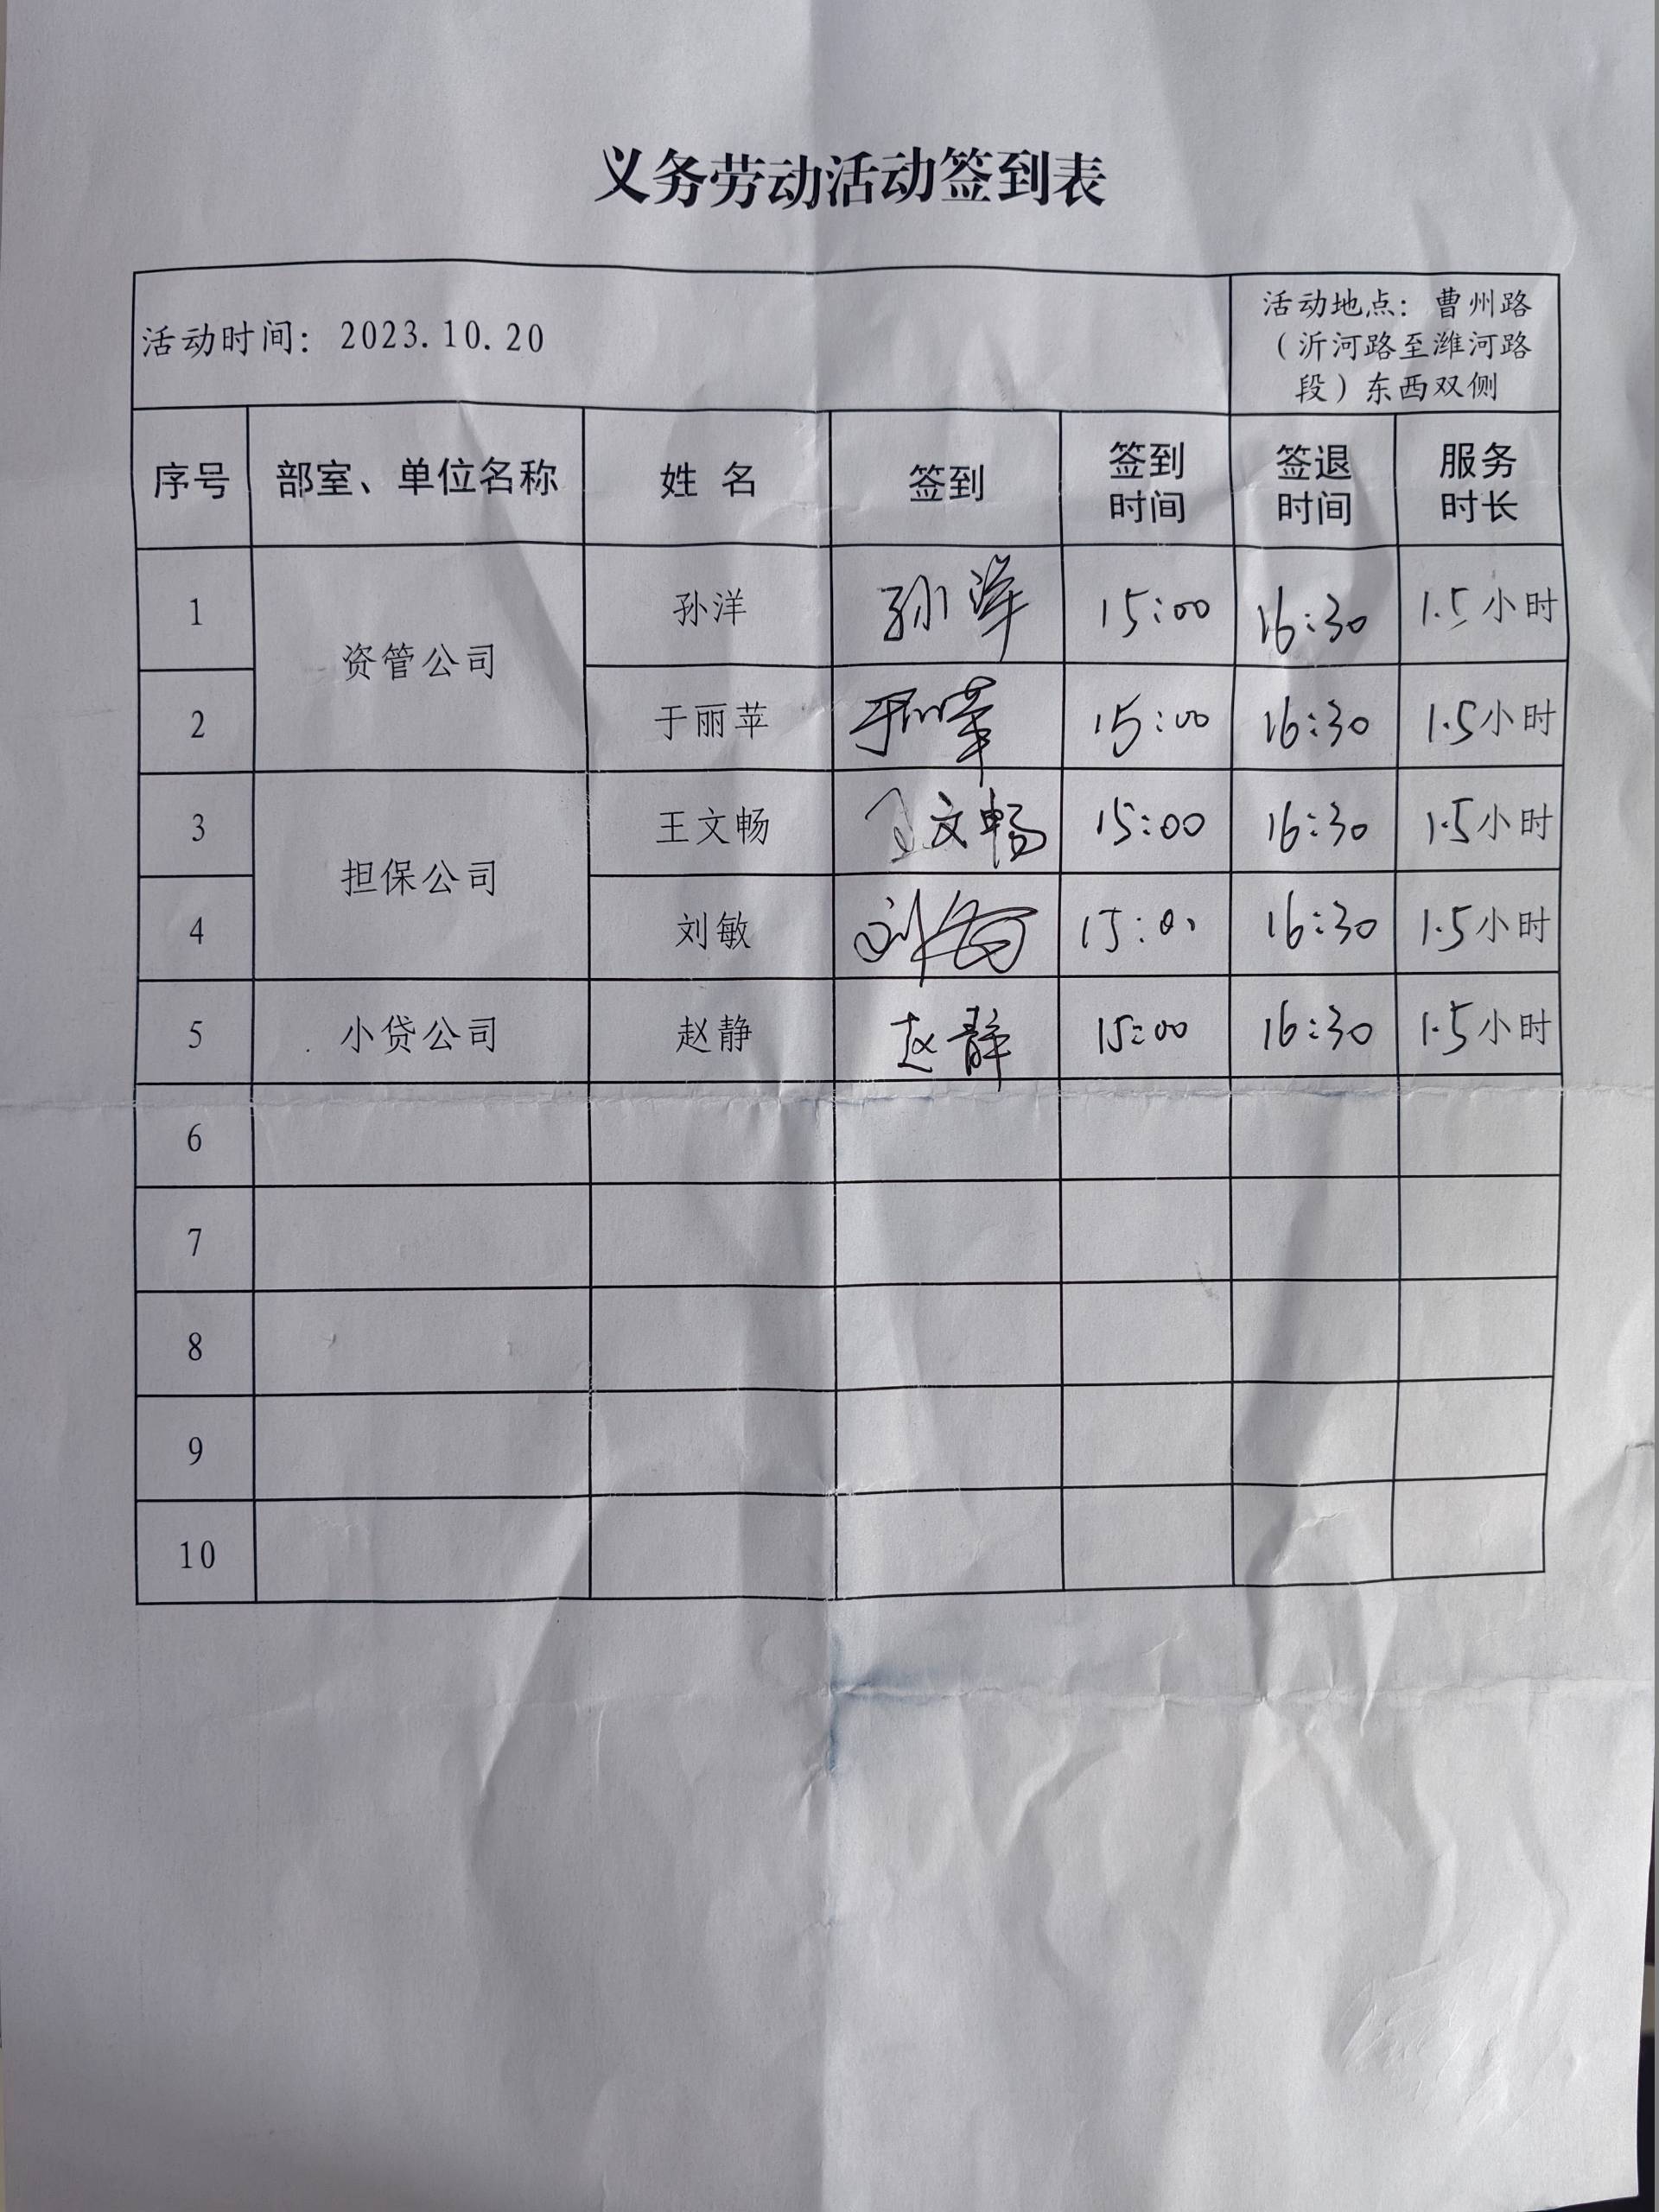 义务劳动活动签到表
活动时间: 2023.10.20
活动地点: 曹州路
(沂河路至潍河路
段)东西双侧
序号 部室、单位名称 姓 名 签到 签到 签退 服务
时间 时间 时长
1 资管公司 孙洋 孙洋 15:00 16:30 1.5小时
2 于丽苹 于丽苹 15:00 16:30 1.5小时
3 担保公司 王文畅 王文畅 15:00 16:30 1.5小时
4 刘敏 刘敏 15:00 16:30 1.5小时
5 小贷公司 赵静 赵静 15:00 16:30 1.5小时
6
7
8
9
10